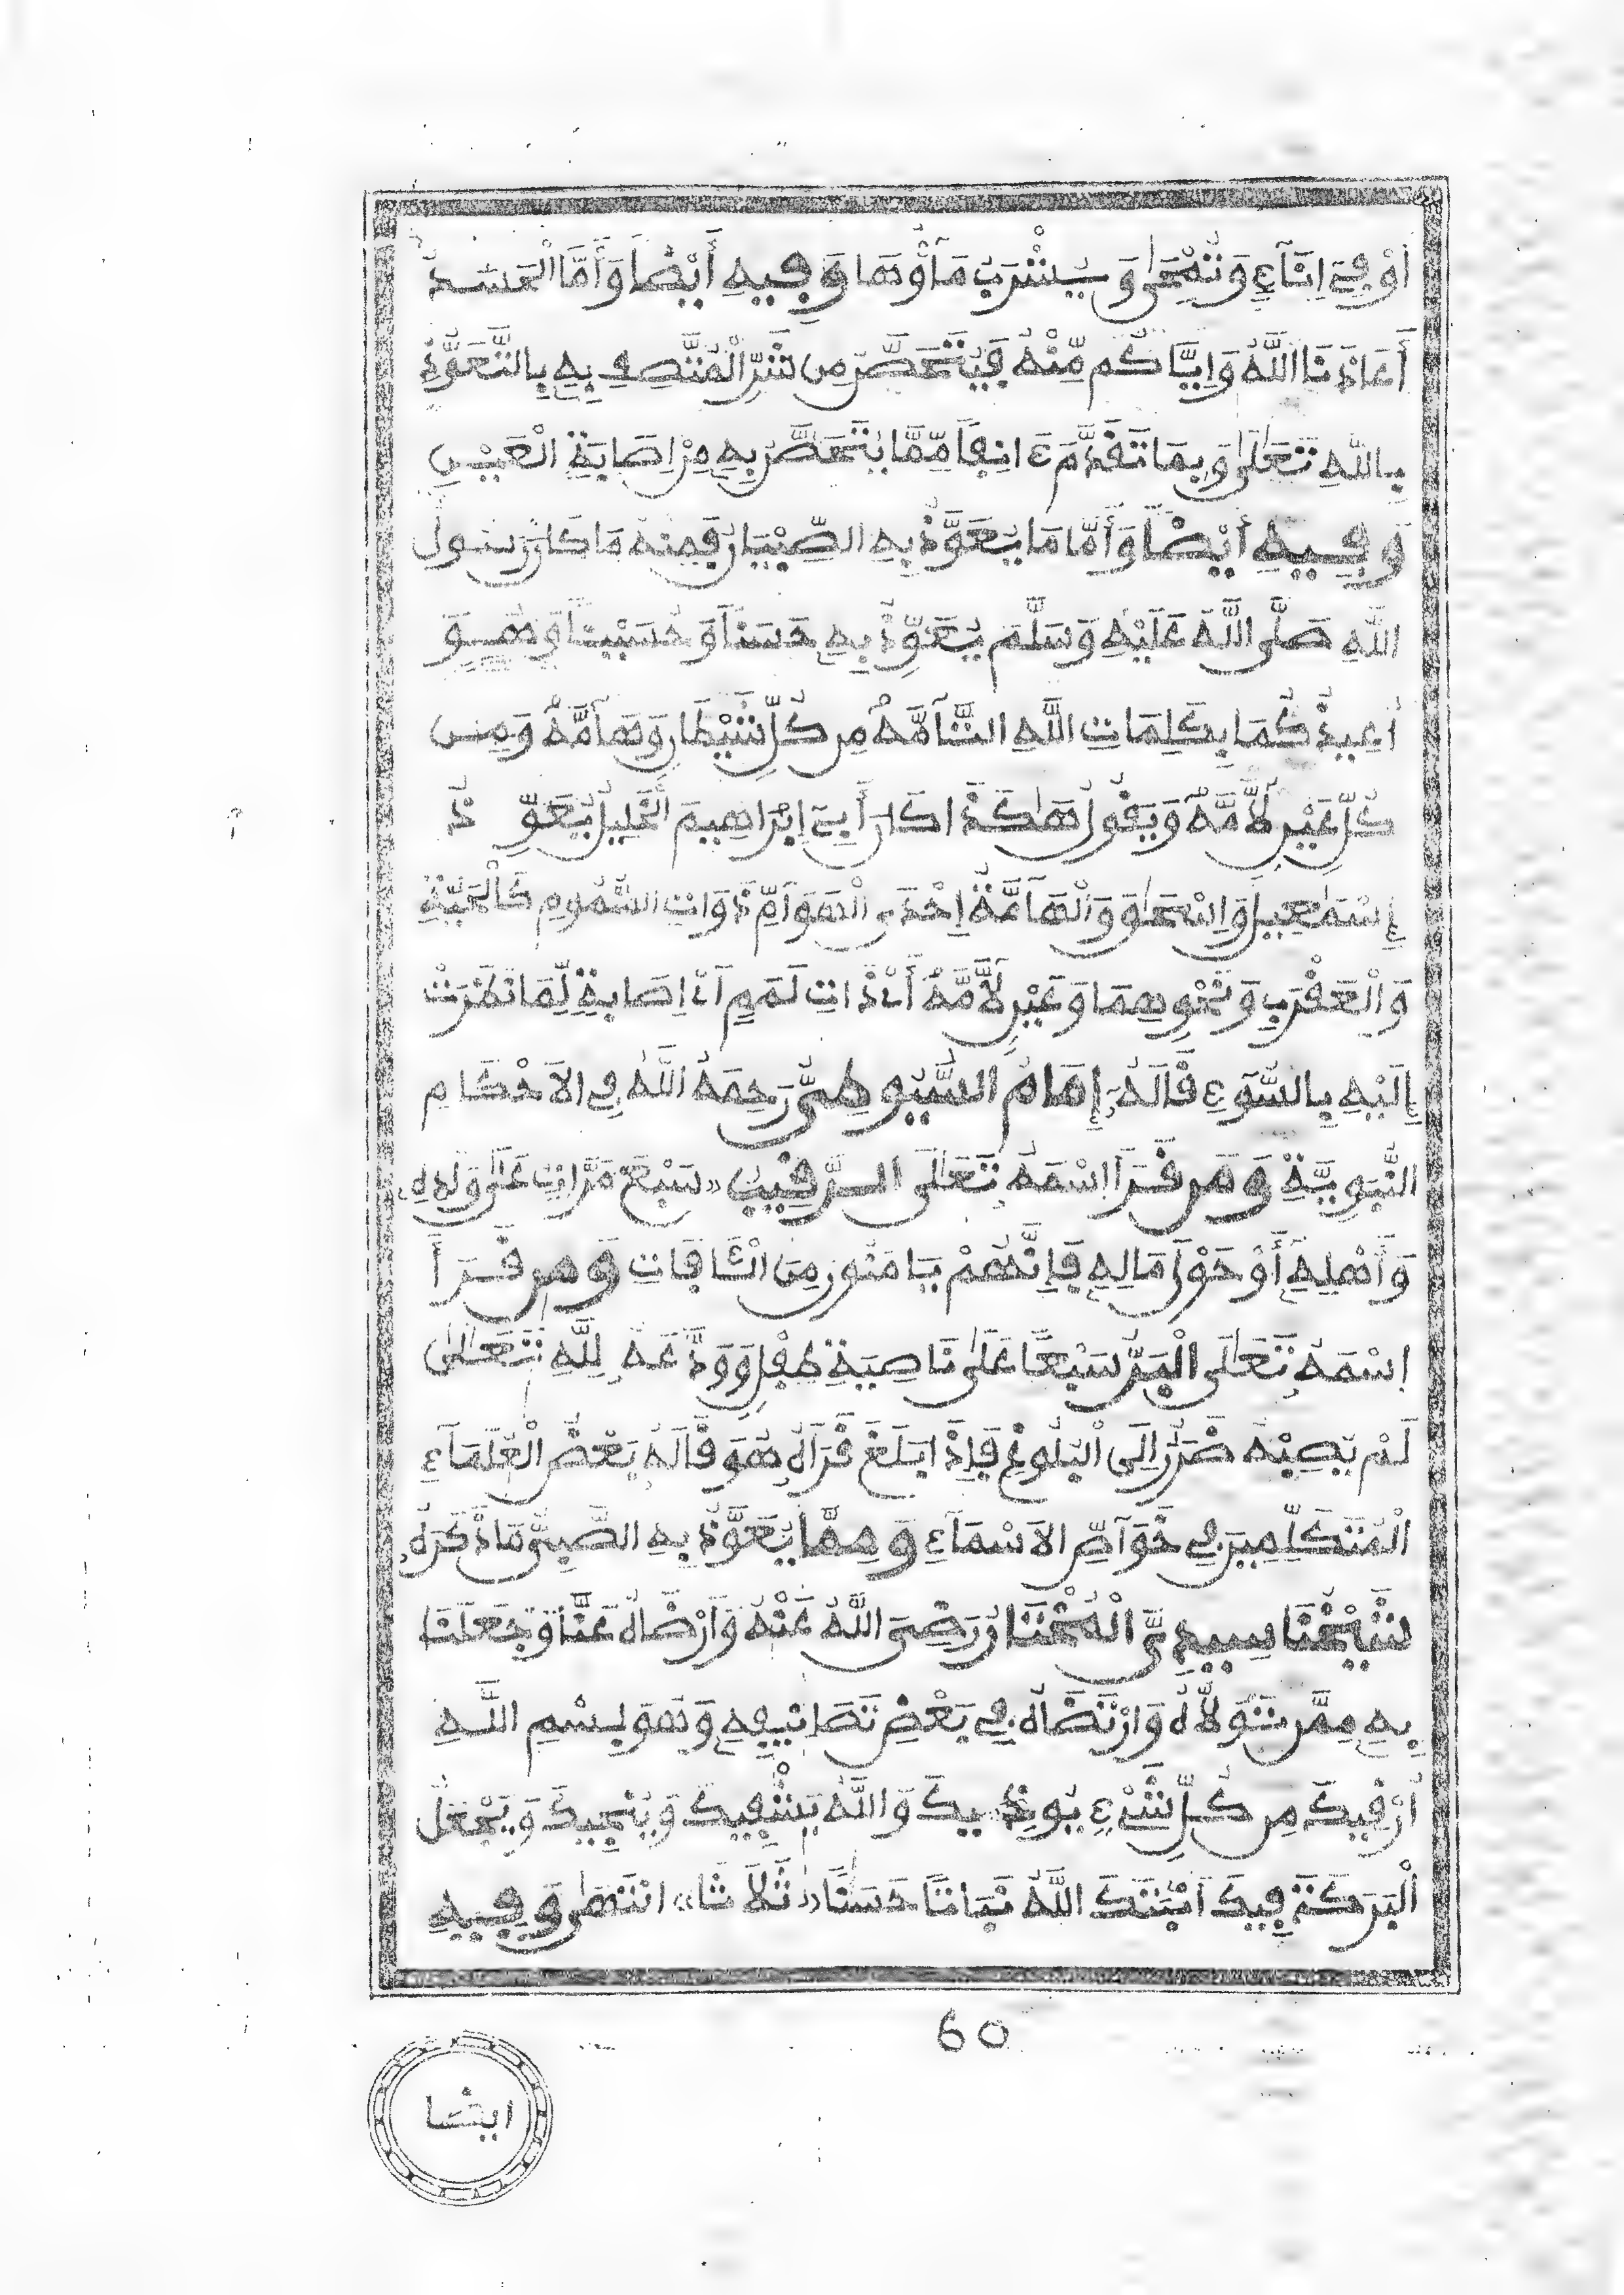 أَوْ فِي إِنَاءٍ وَتُمْحَى وَيُشْرَبُ مَاؤُهَا وَفِيهِ أَيْضًا وَأَمَّا الْحَسَدُ
أَعَاذَنَا اللَّهُ وَإِيَّاكُم مِّنْهُ فَيُتَحَصَّنُ مِن شَرِّ الْمُتَّصِفِ بِهِ بِالتَّعَوُّذِ
بِاللَّهِ تَعَالَى وَبِمَا تَقَدَّمَ ءَانِفًا مِّمَّا يُتَحَصَّنُ بِهِ مِنْ إِصَابَةِ الْعَيْنِ
وَفِيهِ أَيْضًا وَأَمَّا مَا يُعَوَّذُ بِهِ الصِّبْيَانُ فَمِنْهُ مَا كَانَ رَسُولُ
اللَّهِ صَلَّى اللَّهُ عَلَيْهِ وَسَلَّمَ يُعَوِّذُ بِهِ حَسَنًا وَحُسَيْنًا وَهُوَ
أُعِيذُكُمَا بِكَلِمَاتِ اللَّهِ التَّامَّهْ مِن كُلِّ شَيْطَانٍ وَهَامَّهْ وَمِن
كُلِّ عَيْنٍ لَامَّهْ وَيَقُولُ هَكَذَا كَانَ أَبِي إِبْرَاهِيمَ الْخَلِيلُ يُعَوِّذُ
إِسْمَاعِيلَ وَإِسْحَاقَ وَالْهَامَّةُ إِحْدَى الْهَوَامِّ ذَوَاتِ السُّمُومِ كَالْحَيَّةِ
وَالْعَقْرَبِ وَنَحْوِهِمَا وَعَيْنٍ لَامَّهْ أَيْ ذَاتِ لَمَمٍ أَيْ إِصَابَةٍ لِّمَا نَظَرَتْ
إِلَيْهِ بِالسُّوءِ قَالَهُ إِمَامُ السُّيُوطِيُّ رَحِمَهُ اللَّهُ فِي الْأَحْكَامِ
النَّبَوِيَّةِ وَمَن قَرَأَ اسْمَهُ تَعَالَى الرَّقِيبُ «سَبْعَ مَرَّاتٍ عَلَى وَلَدِهِ
وَأَهْلِهِ أَوْ حَوْلَ مَالِهِ فَإِنَّهُمْ يَامَنُونَ مِنَ الْآفَاتِ وَمَن قَرَأَ
اسْمَهُ تَعَالَى الْبَرُّ سَبْعًا عَلَى نَاصِيَةِ طِفْلٍ وَوَدَّعَهُ لِلَّهِ تَعَالَى
لَمْ يُصِبْهُ ضَرَرٌ إِلَى الْبُلُوغِ فَإِذَا بَلَغَ قَرَأَهُ هُوَ قَالَهُ بَعْضُ الْعُلَمَاءِ
الْمُتَكَلِّمِينَ فِي خَوَاصِّ الْأَسْمَاءِ وَمِمَّا يُعَوَّذُ بِهِ الصَّبِيُّ مَا ذَكَرَهُ
شَيْخُنَا سِيدِيَّ الْمُخْتَارُ رَضِيَ اللَّهُ عَنْهُ وَأَرْضَاهُ عَنَّا وَجَعَلَنَا
بِهِ مِمَّن تَوَلَّاهُ وَارْتَضَاهُ فِي بَعْضِ تَصَانِيفِهِ وَهُوَ بِسْمِ اللَّهِ
أَرْقِيكَ مِن كُلِّ شَيْءٍ يُوذِيكَ وَاللَّهُ يَشْفِيكَ وَيُنْجِيكَ وَيَجْعَلُ
الْبَرَكَةَ فِيكَ أَنْبَتَكَ اللَّهُ نَبَاتًا حَسَنًا «ثَلَاثًا» انْتَهَى وَفِيهِ
60
ايضا